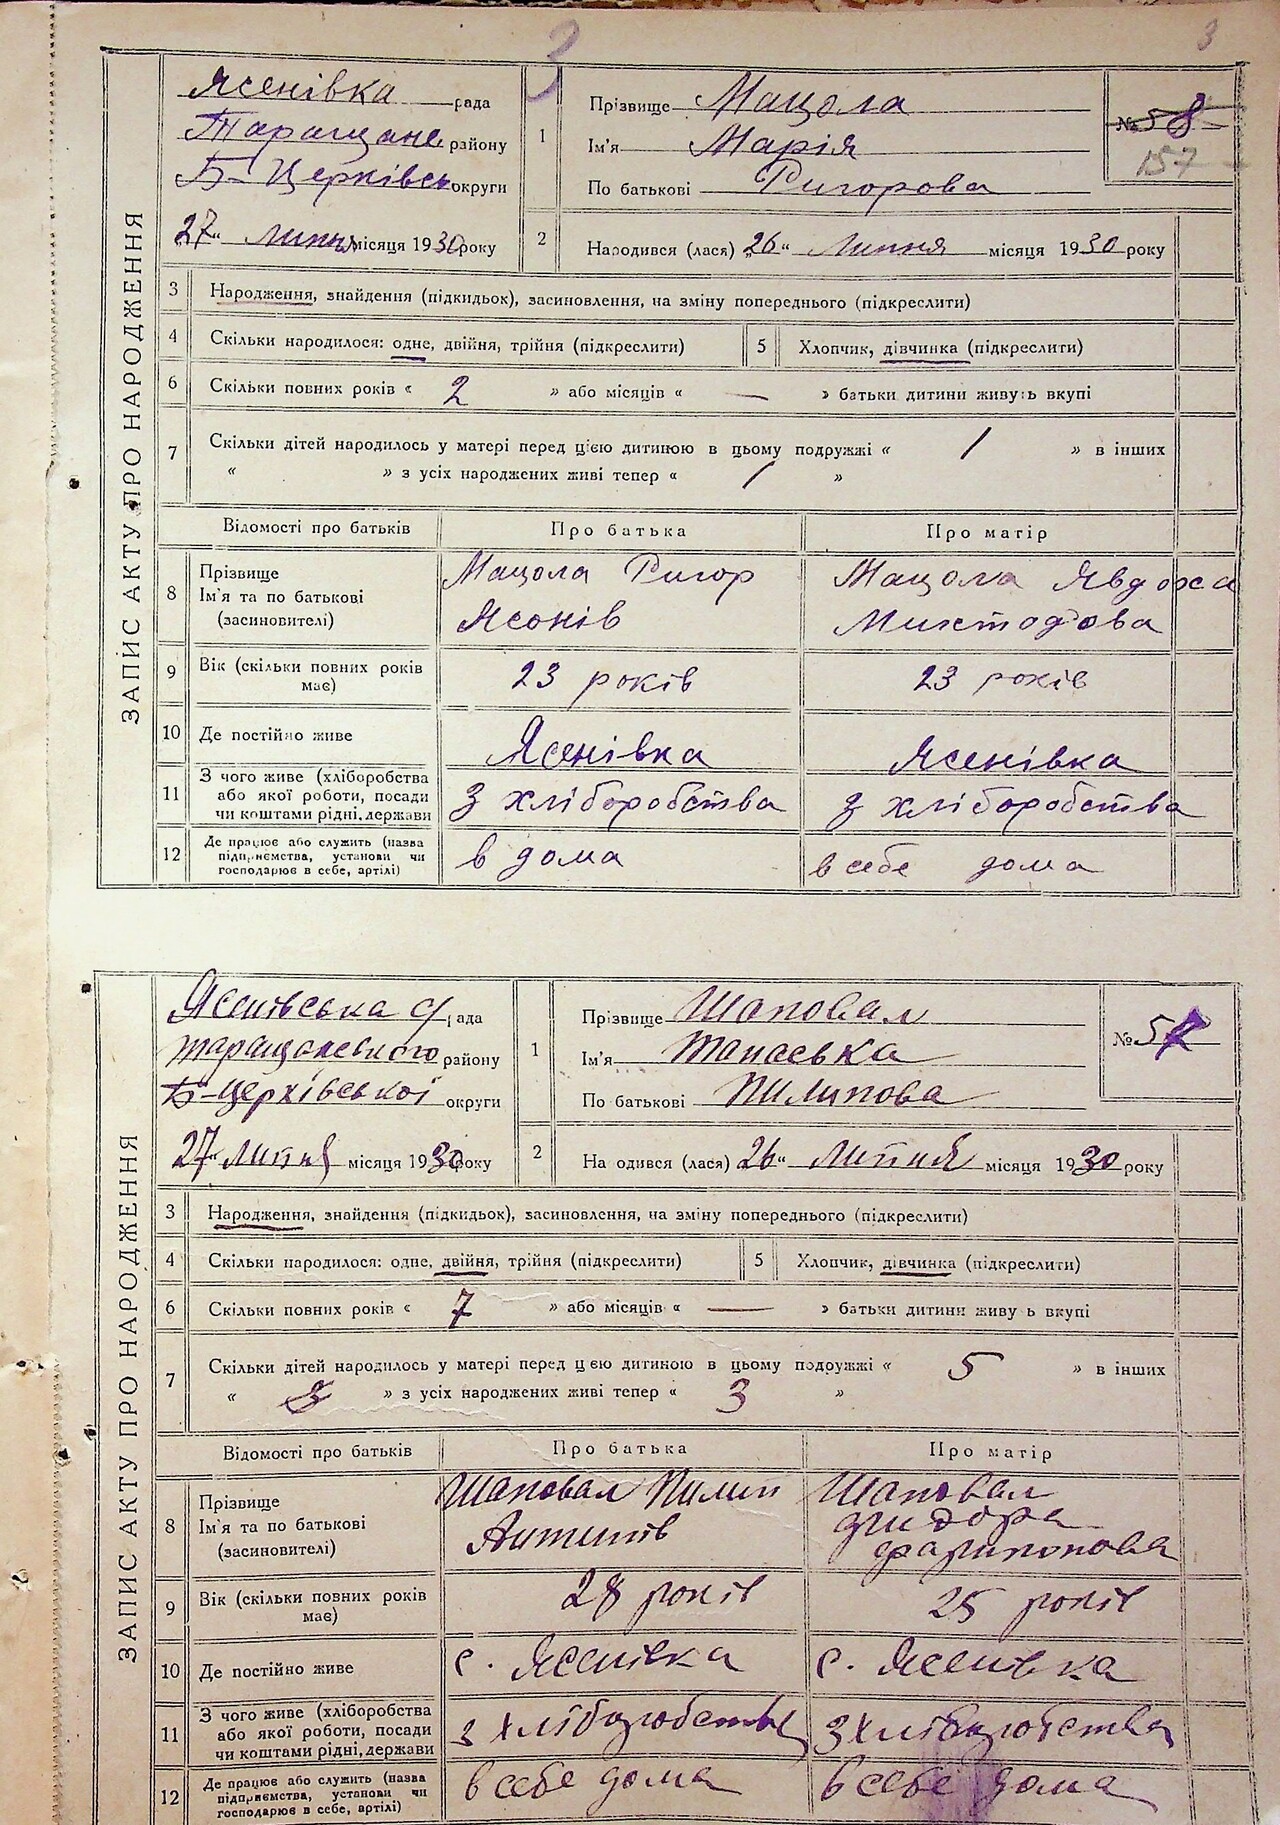 3
3
ЗАПИС АКТУ ПРО НАРОДЖЕННЯ
Ясенівка рада
Таращане. району
Б-Церківськ округи
27" липня місяця 1930 року
1
Прізвище Мацола
Ім'я Марія
По батькові Ригорова
№ 58
157
2
Народився (лася) 26" липня місяця 1930 року
3 Народження, знайдення (підкидьок), засиновлення, на зміну попереднього (підкреслити)
4 Скільки народилося: одне, двійня, трійня (підкреслити) 5 Хлопчик, дівчинка (підкреслити)
6 Скільки повних років « 2 » або місяців « — » батьки дитини живуть вкупі
7 Скільки дітей народилось у матері перед цією дитиною в цьому подружжі « 1 » в інших
« » з усіх народжених живі тепер « 1 »
Відомості про батьків Про батька Про матір
8 Прізвище Ім'я та по батькові (засиновителі)
Мацола Ригор
Ясонів
Мацола Явдоха
9 Вік (скільки повних років має) 23 років 23 років
10 Де постійно живе Ясенівка Ясенівка
11 З чого живе (хліборобства або якої роботи, посади чи коштами рідні, держави З хліборобства З хліборобства
12 Де працює або служить (назва підприємства, установи чи господарює в себе, артілі) в дома в себе дома
ЗАПИС АКТУ ПРО НАРОДЖЕННЯ
Ясенівська с/рада
Таращанського району
Б-Церківської округи
27" липня місяця 1930 року
1
Прізвище Шаповал
Ім'я Танаська
По батькові Пилипова
№ 57
2
На одився (лася) 26" липня місяця 1930 року
3 Народження, знайдення (підкидьок), засиновлення, на зміну попереднього (підкреслити)
4 Скільки народилося: одне, двійня, трійня (підкреслити) 5 Хлопчик, дівчинка (підкреслити)
6 Скільки повних років « 7 » або місяців « — » батьки дитини живу ь вкупі
7 Скільки дітей народилось у матері перед цією дитиною в цьому подружжі « 5 » в інших
« 3 » з усіх народжених живі тепер « 3 »
Відомості про батьків Про батька Про матір
8 Прізвище Ім'я та по батькові (засиновителі)
Шаповал Пилип
Антипів
Шаповал
9 Вік (скільки повних років має) 28 років 25 років
10 Де постійно живе с. Ясенівка с. Ясенівка
11 З чого живе (хліборобства або якої роботи, посади чи коштами рідні, держави з хліборобства з хліборобства
12 Де працює або служить (назва підприємства, установи чи господарює в себе, артілі) в себе дома в себе дома